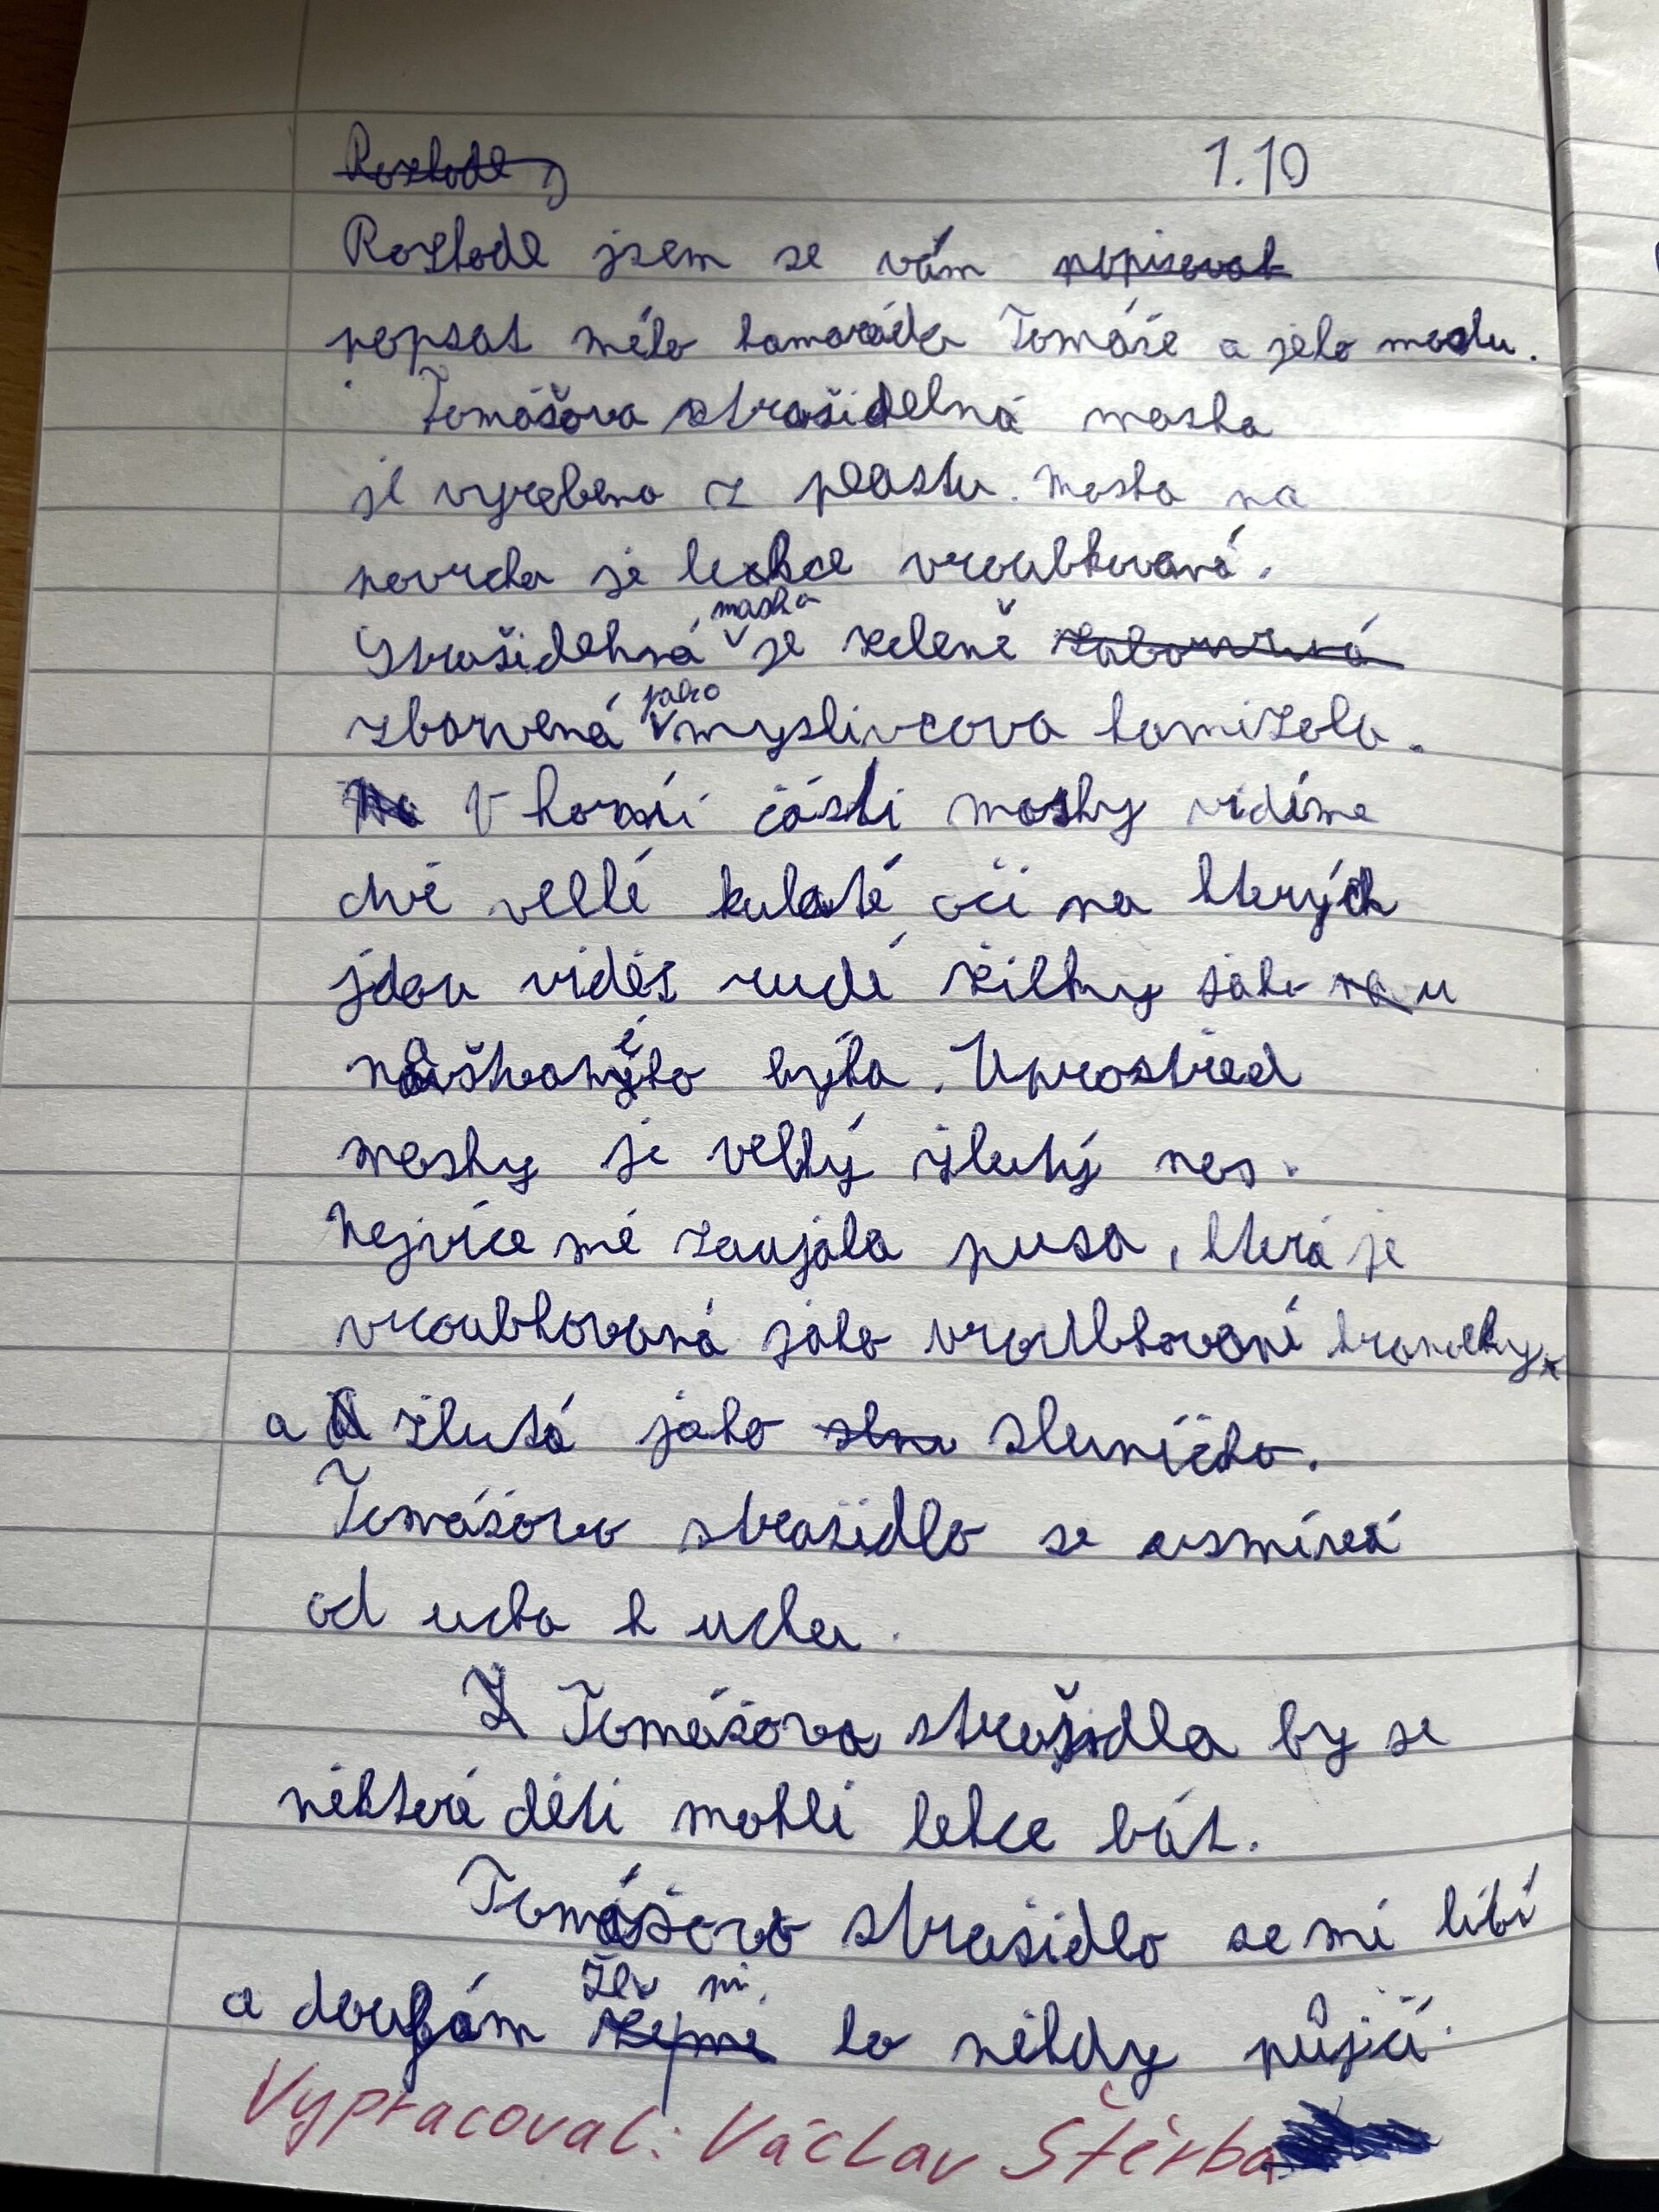 1.10
Rozhodl jsem se vám popisovat
popsat mého kamaráda Tomáše a jeho masku.
Tomášova strašidelná maska
je vyrobena z plastu. Maska na
povrchu je lehce vroubkovaná.
Strašidelná maska je zeleně
zbarvená jako myslivcova kamizola.
V horní části masky vidíme
dvě velké kulaté oči na kterých
jdou vidět rudé žilky jako u
naštvaného býka. Uprostřed
masky je velký žlutý nos.
Nejvíce mě zaujala pusa, která je
vroubkovaná jako vroubkované
a žlutá jako sluníčko.
Tomášovo strašidlo se usmívá
od ucha k uchu.
Z Tomášova strašidla by se
některé děti mohli lehce bát.
Tomášovo strašidlo se mi líbí
a doufám že mi to někdy půjčí.
Vypracoval: Václav Štěrba